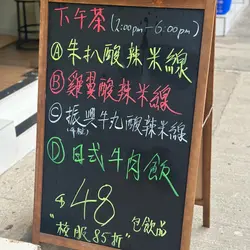 下午茶(2:00pm-6:00pm)
Ⓐ朱扒酸辣米線
Ⓑ雞翼酸辣米線
Ⓒ振興牛丸酸辣米線
Ⓓ日式牛肉飯
$48 包飲品
"核酸85折"